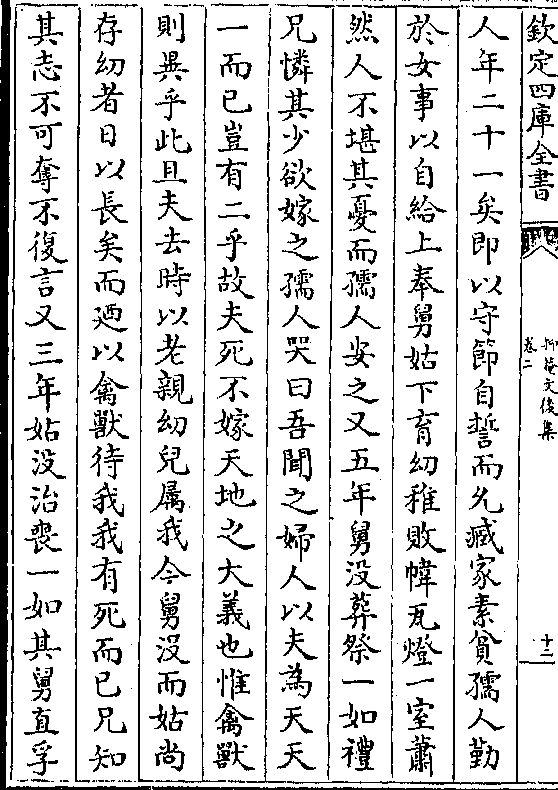 欽定四庫全書
抑菴文後集
卷二
十二
人年二十一矣即以守節自誓而允臧家素貧孺人勤
於女事以自給上奉舅姑下育幼稚敗幃瓦燈一室蕭
然人不堪其憂而孺人安之又五年舅没葬祭一如禮
兄憐其少欲嫁之孺人哭曰吾聞之婦人以夫為天天
一而已豈有二乎故夫死不嫁天地之大義也惟禽獸
則異乎此且夫去時以老親幼兒屬我今舅没而姑尚
存幼者日以長矣而廼以禽獸待我我有死而已兄知
其志不可奪不復言又三年姑没治喪一如其舅直孚